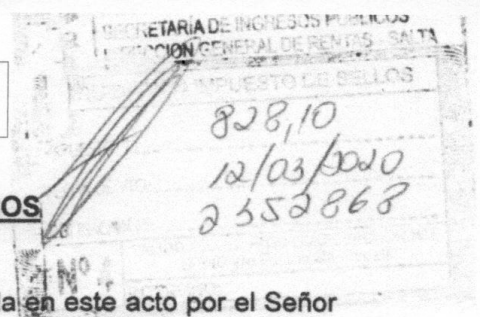 SECRETARÍA DE INGRESOS PUBLICOS
DIRECCION GENERAL DE RENTAS - SALTA
IMPUESTO DE SELLOS
828,10
12/03/2020
2352868
OS
Nº
la en este acto por el Señor